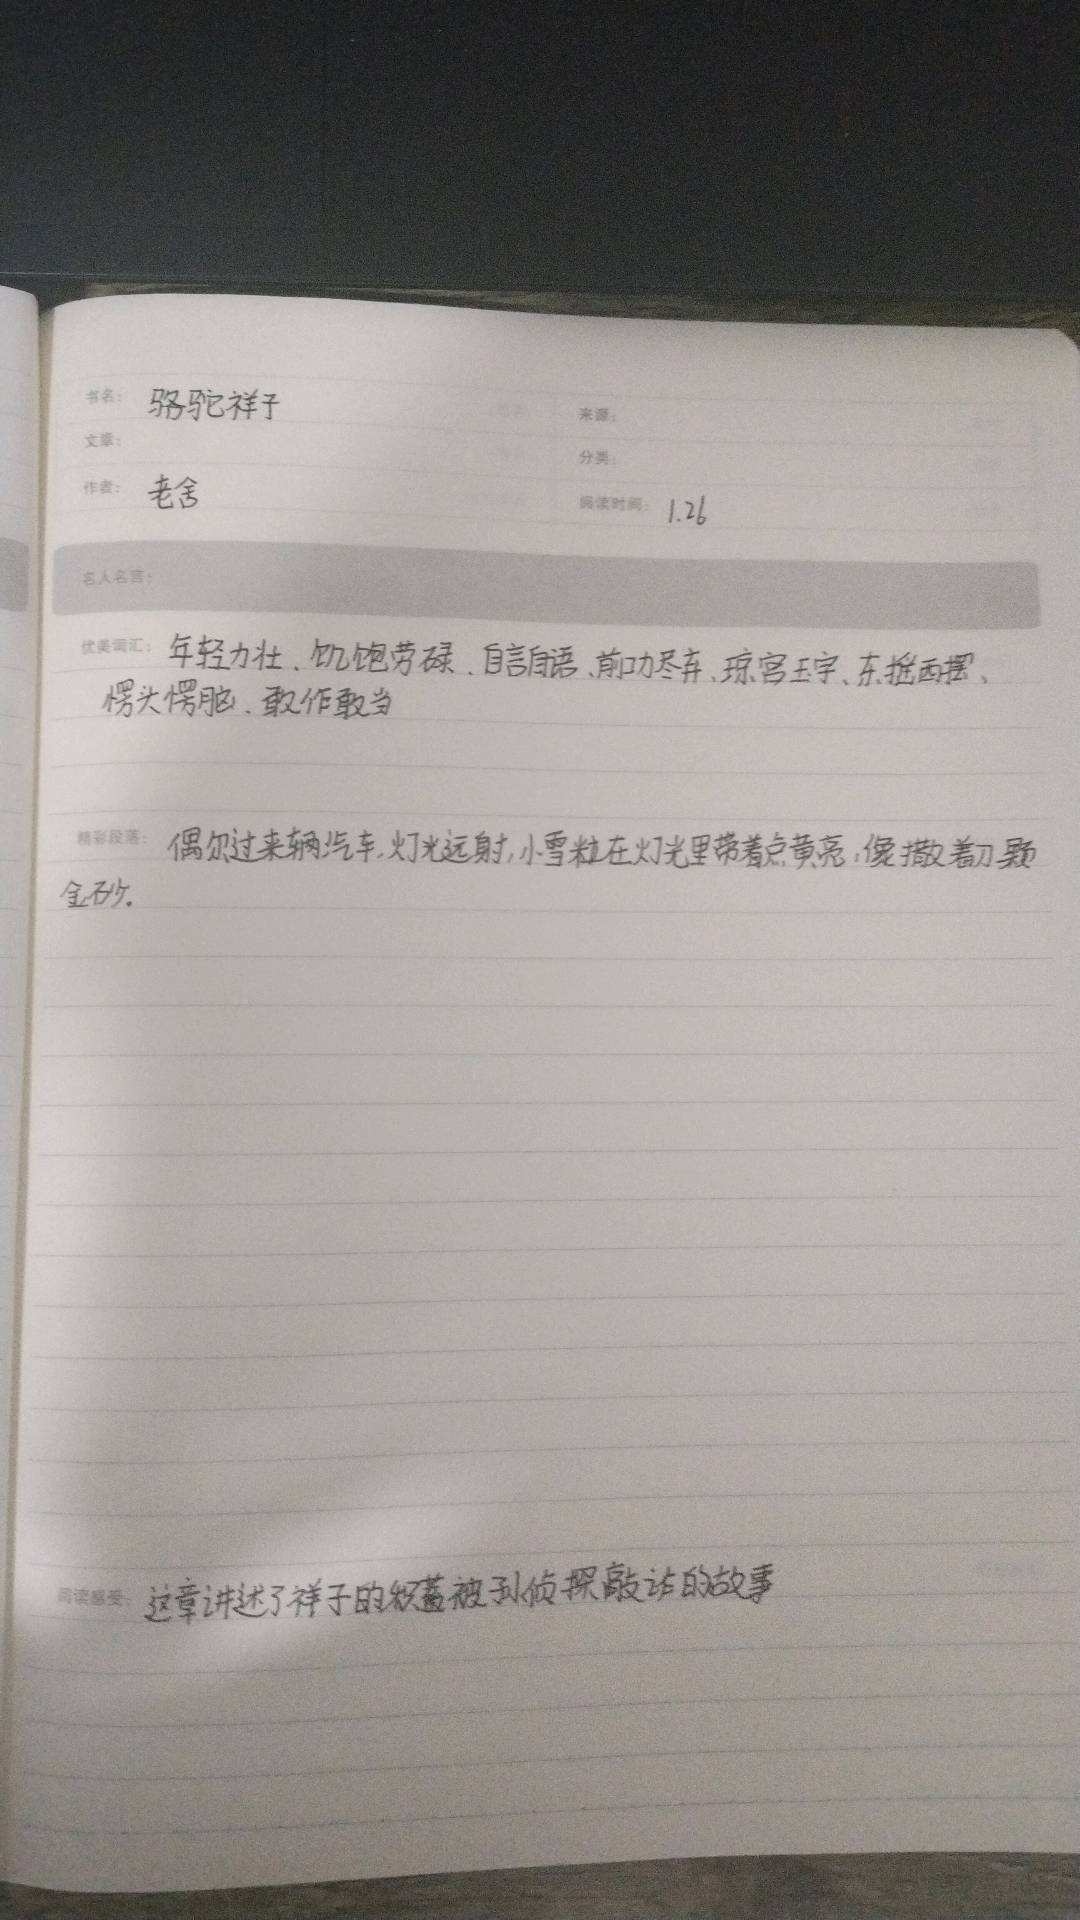 书名: 骆驼祥子
来源:
文章:
分类:
作者: 老舍
阅读时间: 1.26
名人名言:
优美词汇: 年轻力壮、饥饱劳碌、自言自语、前功尽弃、琼宫玉宇、东摇西摆、
愣头愣脑、敢作敢当
精彩段落: 偶尔过来辆汽车,灯光远射,小雪粒在灯光里带着点黄亮,像撒着万颗
金砂.
阅读感受: 这章讲述了祥子的积蓄被孙侦探敲诈的故事